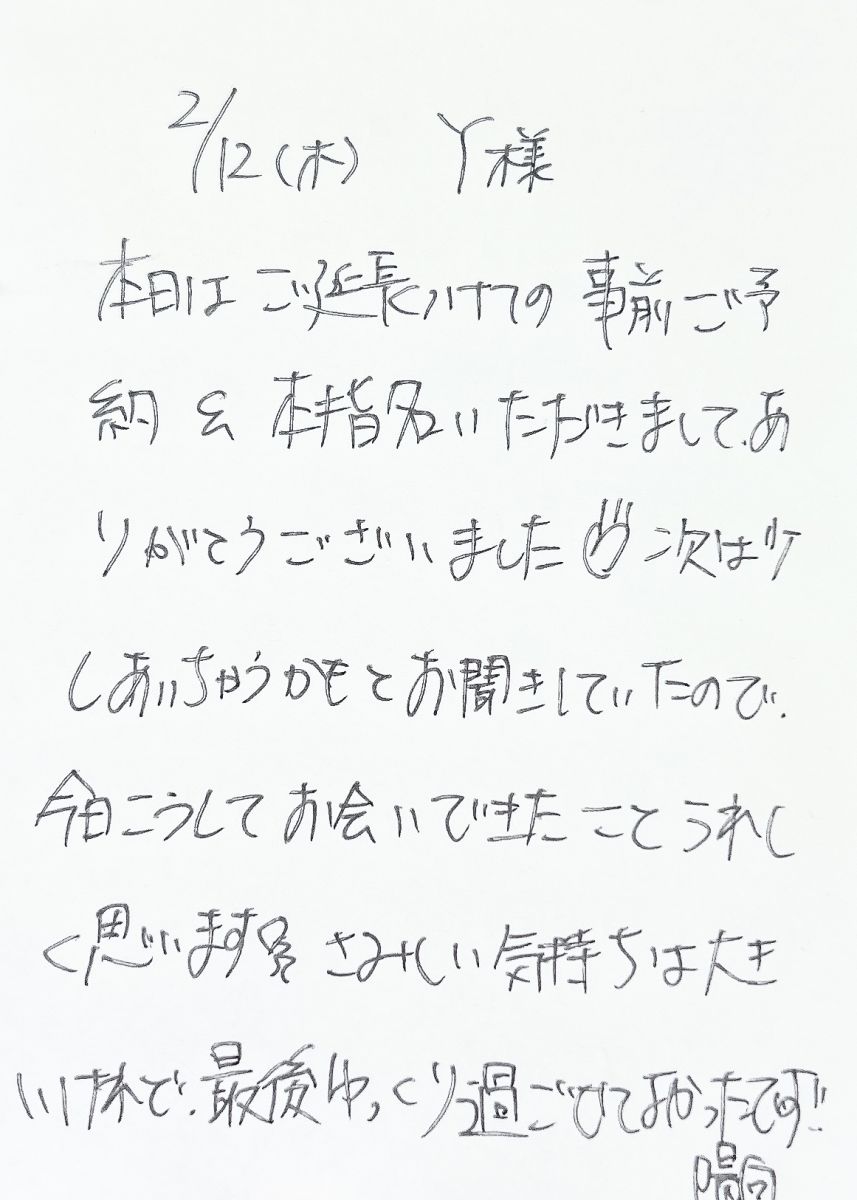 2/12(木) Y様
本日はご延長かけての事前ご予
約&本指名いただきまして、あ
りがとうございました 次は少
しあいちゃうかもとお聞きしていたので、
今日こうしてお会いできたことうれし
く思います さみしい気持ちは大き
いけれど、最後ゆっくり過ごせてよかったです!!